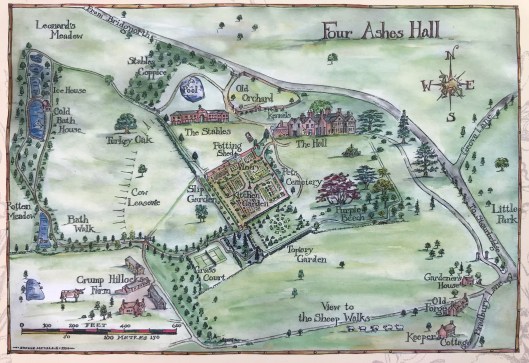 Four Ashes Hall
From Bridgnorth
Leonard's
Meadow
Stable
Coppice
Pool
Old
Orchard
Ice House
Cold
Bath
House
Turkey Oak
The Stables
Kennels
The Hall
Potting
Shed
N
W
E
S
Cow
Leasowe
Slip
Garden
Kitchen
Garden
Pets
Cemetery
Purple
Beech
Little
Park
Meadow
Bath
Walk
Topiary
Garden
Grass
Court
Crump Hillocks
Farm
Gardener's
House
Old
Forge
View to
the Sheep Walks
Keeper's
Cottage
FEET
200
400
600
50
100 METRES 150